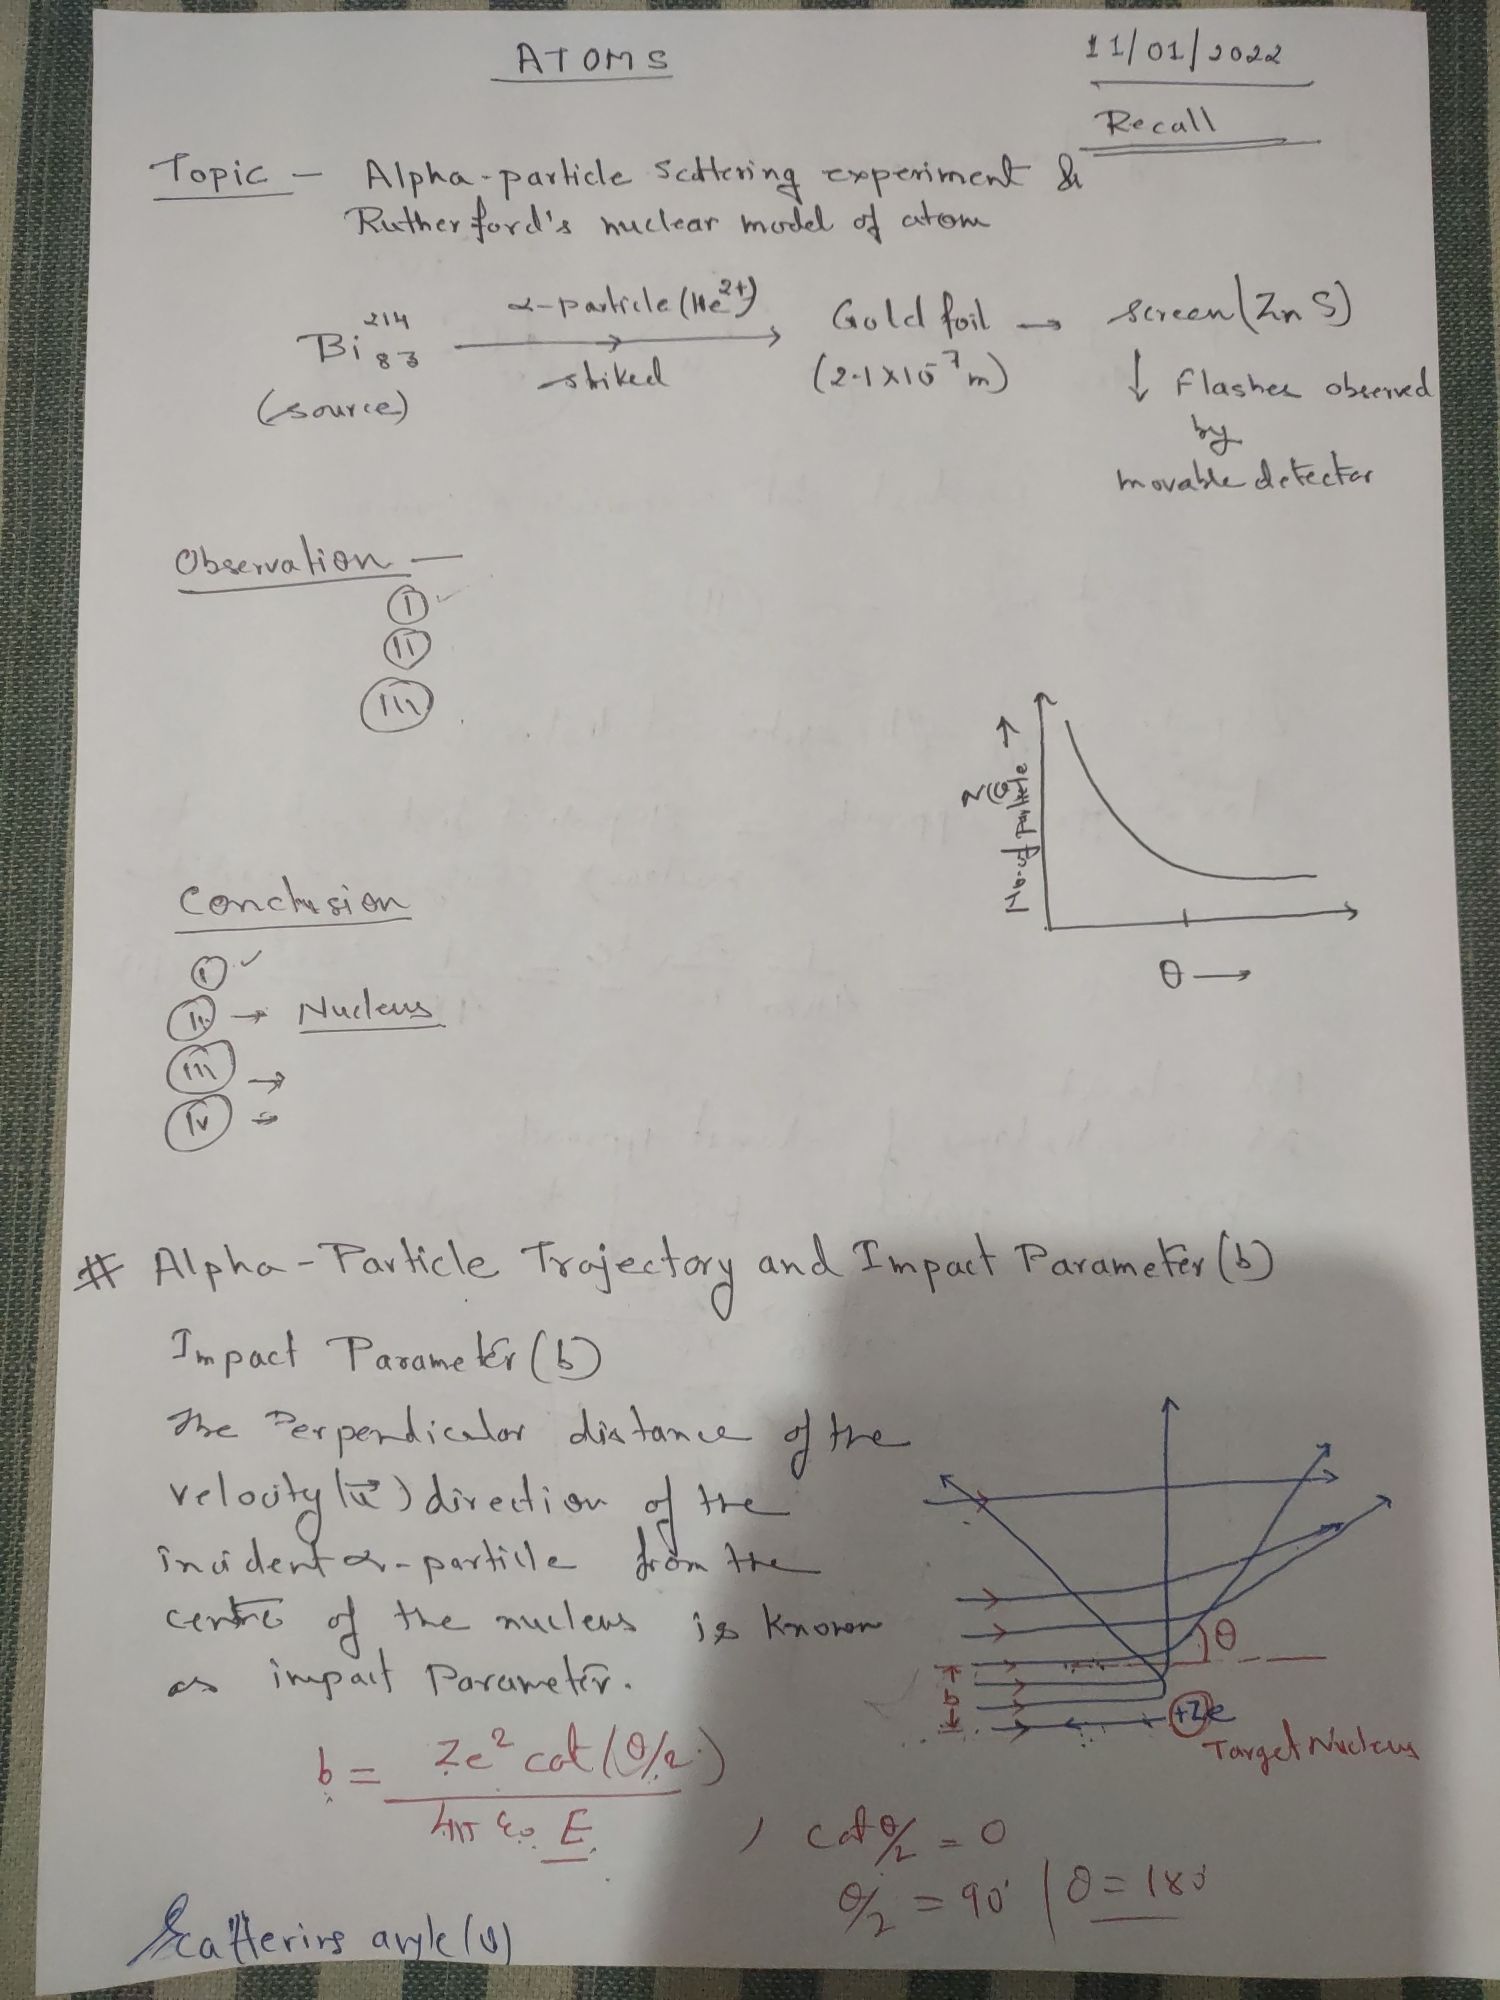 ATOMS
11/01/2022
Recall
Topic - Alpha-particle scattering experiment &
Rutherford's nuclear model of atom
Bi 214 83
(source)
α-particle (He2+)
striked
Gold foil → screen (ZnS)
(2.1 × 10-7 m)
↓ Flashes observed
by
movable detector
Observation -
(i) ✓
(ii)
(iii)
No. of particle →
N(θ)
θ →
Conclusion
(i) ✓
(ii) → Nucleus
(iii) →
(iv) →
# Alpha-Particle Trajectory and Impact Parameter (b)
Impact Parameter (b)
The Perpendicular distance of the
velocity (u⃗) direction of the
incident α-particle from the
centre of the nucleus is known
as impact Parameter.
θ
b
+Ze
Target Nucleus
b = Ze² cot(θ/2) / 4π ε₀ E
, cot θ/2 = 0
θ/2 = 90° | θ = 180°
Scattering angle (θ)